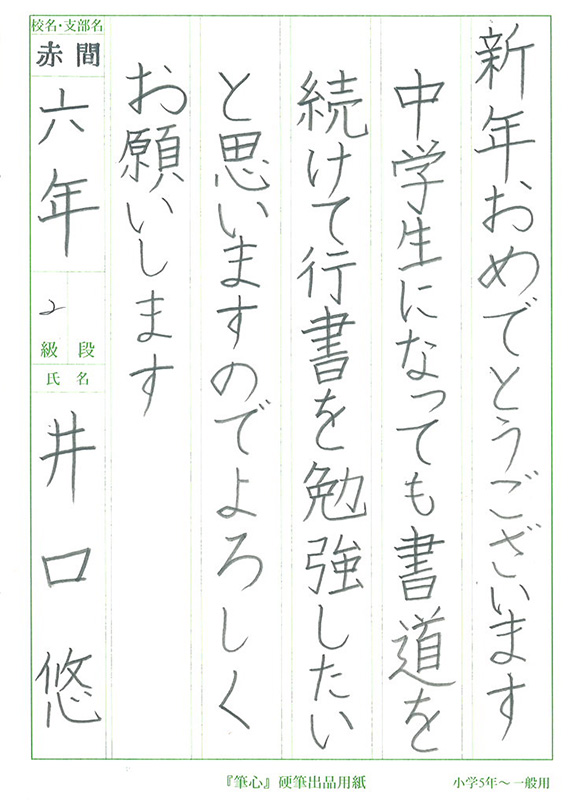 新年おめでとうございます
中学生になっても書道を
続けて行書を勉強したい
と思いますのでよろしく
お願いします
校名・支部名
赤間
六年
2
級 段
氏名
井口悠
『筆心』硬筆出品用紙
小学5年～一般用